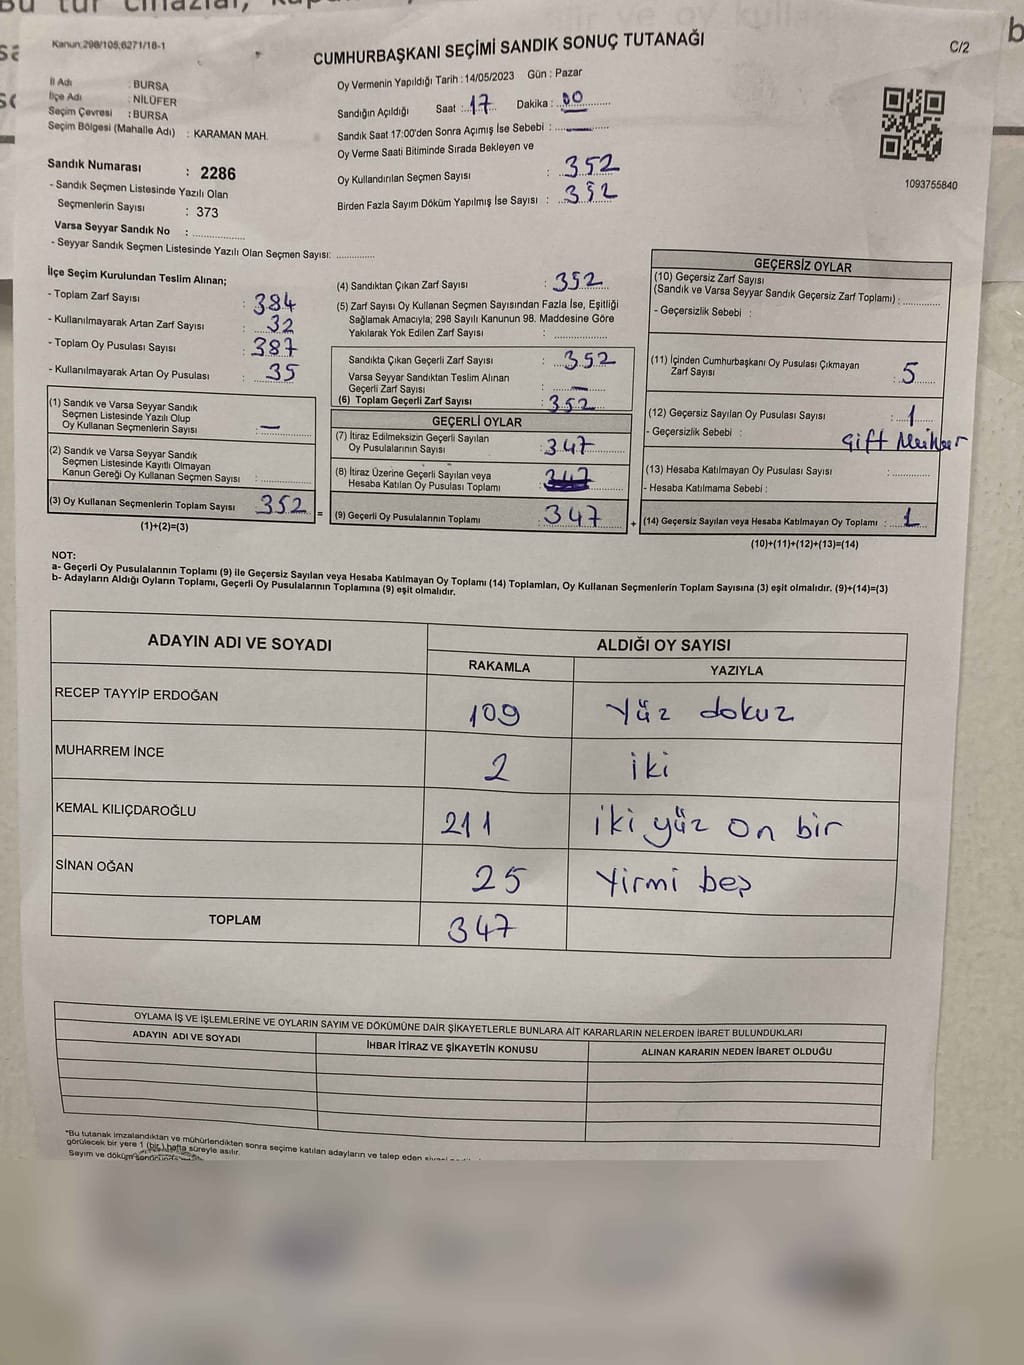 Bu tür cihazlar,
ve oy kulla
Kanun:298/105,6271/18-1
CUMHURBAŞKANI SEÇİMİ SANDIK SONUÇ TUTANAĞI
C/2
İl Adı : BURSA
İlçe Adı : NİLÜFER
Seçim Çevresi : BURSA
Seçim Bölgesi (Mahalle Adı) : KARAMAN MAH.
Oy Vermenin Yapıldığı Tarih : 14/05/2023 Gün : Pazar
Sandığın Açıldığı Saat : 17 Dakika : 00
Sandık Saat 17:00'den Sonra Açımış İse Sebebi : —
Oy Verme Saati Bitiminde Sırada Bekleyen ve
Oy Kullandırılan Seçmen Sayısı : 352
Birden Fazla Sayım Döküm Yapılmış İse Sayısı : 352
1093755840
Sandık Numarası : 2286
- Sandık Seçmen Listesinde Yazılı Olan
Seçmenlerin Sayısı : 373
Varsa Seyyar Sandık No : ................
- Seyyar Sandık Seçmen Listesinde Yazılı Olan Seçmen Sayısı: ............
İlçe Seçim Kurulundan Teslim Alınan;
- Toplam Zarf Sayısı : 384
- Kullanılmayarak Artan Zarf Sayısı : 32
- Toplam Oy Pusulası Sayısı : 387
- Kullanılmayarak Artan Oy Pusulası : 35
(1) Sandık ve Varsa Seyyar Sandık
Seçmen Listesinde Yazılı Olup
Oy Kullanan Seçmenlerin Sayısı : —
(2) Sandık ve Varsa Seyyar Sandık
Seçmen Listesinde Kayıtlı Olmayan
Kanun Gereği Oy Kullanan Seçmen Sayısı : ............
(3) Oy Kullanan Seçmenlerin Toplam Sayısı 352 =
(1)+(2)=(3)
(4) Sandıktan Çıkan Zarf Sayısı : 352
(5) Zarf Sayısı Oy Kullanan Seçmen Sayısından Fazla İse, Eşitliği
Sağlamak Amacıyla; 298 Sayılı Kanunun 98. Maddesine Göre
Yakılarak Yok Edilen Zarf Sayısı : ............
Sandıkta Çıkan Geçerli Zarf Sayısı : 352
Varsa Seyyar Sandıktan Teslim Alınan
Geçerli Zarf Sayısı : —
(6) Toplam Geçerli Zarf Sayısı : 352
GEÇERLİ OYLAR
(7) İtiraz Edilmeksizin Geçerli Sayılan
Oy Pusulalarının Sayısı : 347
(8) İtiraz Üzerine Geçerli Sayılan veya
Hesaba Katılan Oy Pusulası Toplamı : 347
(9) Geçerli Oy Pusulalarının Toplamı : 347 +
GEÇERSİZ OYLAR
(10) Geçersiz Zarf Sayısı
(Sandık ve Varsa Seyyar Sandık Geçersiz Zarf Toplamı) : ............
- Geçersizlik Sebebi :
(11) İçinden Cumhurbaşkanı Oy Pusulası Çıkmayan
Zarf Sayısı : 5
(12) Geçersiz Sayılan Oy Pusulası Sayısı : 1
- Geçersizlik Sebebi : Çift Mühür
(13) Hesaba Katılmayan Oy Pusulası Sayısı : ............
- Hesaba Katılmama Sebebi :
(14) Geçersiz Sayılan veya Hesaba Katılmayan Oy Toplamı : 1
(10)+(11)+(12)+(13)=(14)
NOT:
a- Geçerli Oy Pusulalarının Toplamı (9) ile Geçersiz Sayılan veya Hesaba Katılmayan Oy Toplamı (14) Toplamları, Oy Kullanan Seçmenlerin Toplam Sayısına (3) eşit olmalıdır. (9)+(14)=(3)
b- Adayların Aldığı Oyların Toplamı, Geçerli Oy Pusulalarının Toplamına (9) eşit olmalıdır.
ADAYIN ADI VE SOYADI ALDIĞI OY SAYISI
RAKAMLA YAZIYLA
RECEP TAYYİP ERDOĞAN 109 Yüz dokuz
MUHARREM İNCE 2 iki
KEMAL KILIÇDAROĞLU 211 iki yüz on bir
SİNAN OĞAN 25 Yirmi beş
TOPLAM 347
OYLAMA İŞ VE İŞLEMLERİNE VE OYLARIN SAYIM VE DÖKÜMÜNE DAİR ŞİKAYETLERLE BUNLARA AİT KARARLARIN NELERDEN İBARET BULUNDUKLARI
ADAYIN ADI VE SOYADI İHBAR İTİRAZ VE ŞİKAYETİN KONUSU ALINAN KARARIN NEDEN İBARET OLDUĞU
*Bu tutanak imzalandıktan ve mühürlendikten sonra seçime katılan adayların ve talep eden
görülecek bir yere 1 (bir) hafta süreyle asılır.
Sayım ve döküm